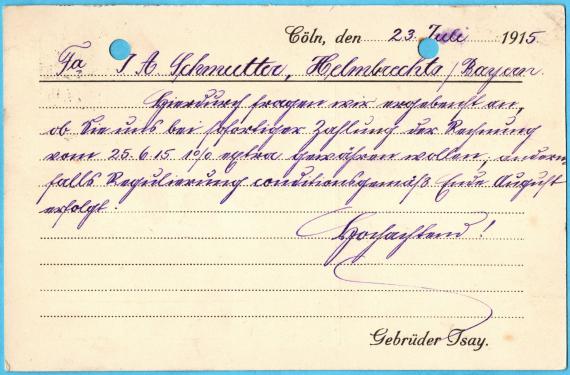 Cöln, den 23. Juli 1915
Fa J A Schmutter, Helmbrechts / Bayern.
Hierdurch fragen wir ergebenst an,
ob Sie uns bei sofortiger Zahlung der Rechnung
vom 25.6.15 1% extra gewähren wollen, andern-
falls Regulierung conditionsgemäß Ende August
erfolgt.
Hochachtend!
Gebrüder Isay.